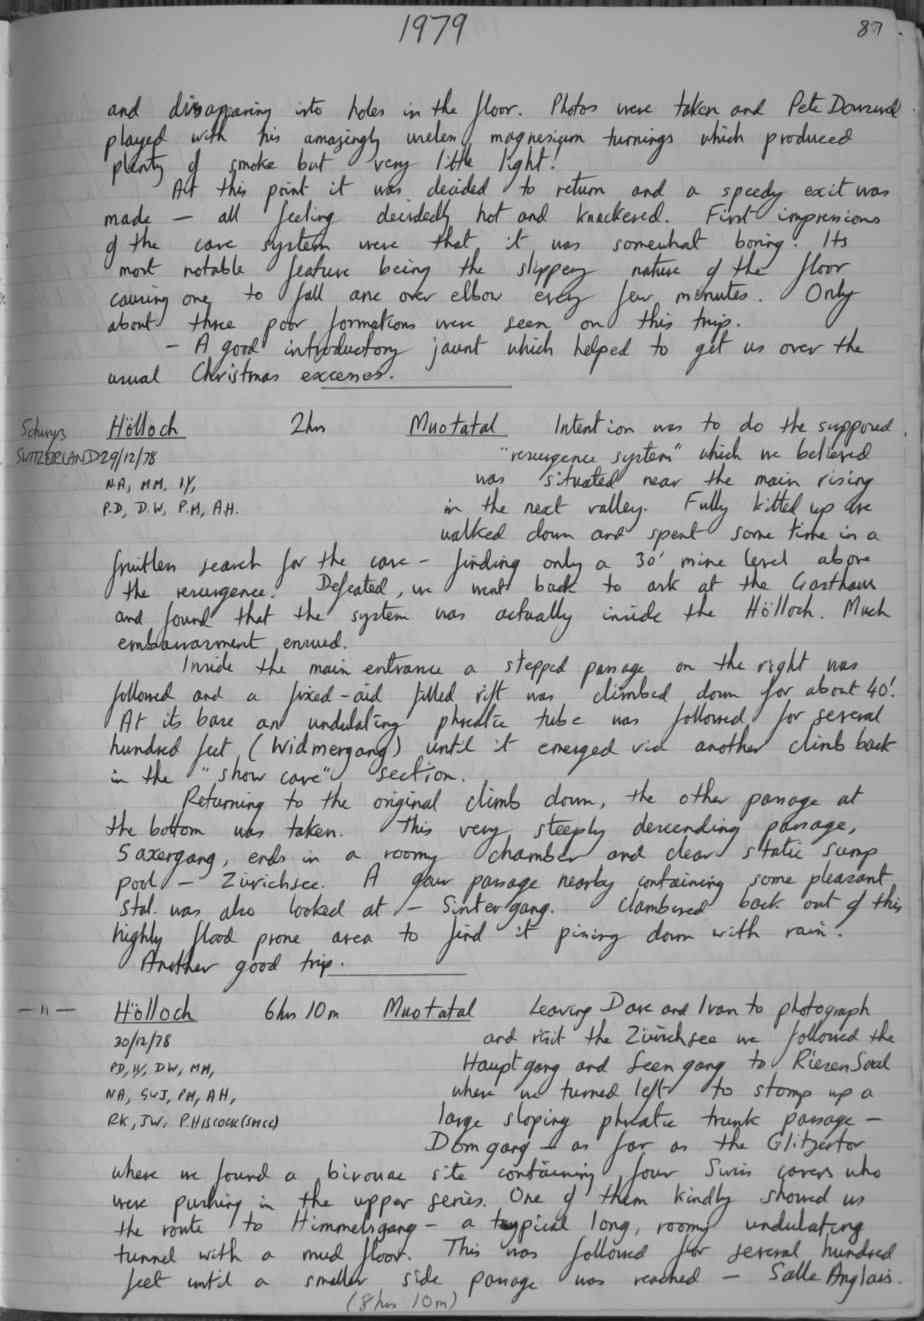 1979
87
and dissapearing into holes in the floor. Photos were taken and Pete
played with his amazingly useless magnesium turnings which produced
plenty of smoke but very little light!
At this point it was decided to return and a speedy exit was
made — all feeling decidedly hot and knackered. First impressions
of the cave system were that it was somewhat boring! Its
most notable feature being the slippery nature of the floor
causing one to fall arse over elbow every few minutes. Only
about three poor formations were seen on this trip.
- A good introductory jaunt which helped to get us over the
usual Christmas excesses.
Schwyz
SWITZERLAND
Hölloch 2hrs Muotatal Intention was to do the supposed
29/12/78 "resurgence system" which we believed
NA, MM, IY, was situated near the main rising
P.D, D.W, P.M, A.H. in the next valley. Fully kitted up we
walked down and spent some time in a
fruitless search for the cave - finding only a 30' mine level above
the resurgence. Defeated, we went back to ask at the Gasthaus
and found that the system was actually inside the Hölloch. Much
embarrasment ensued.
Inside the main entrance a stepped passage on the right was
followed and a fixed-aid filled rift was climbed down for about 40'.
At its base an undulating phreatic tube was followed for several
hundred feet (Widmergang) until it emerged via another climb back
in the "show cave" section.
Returning to the original climb down, the other passage at
the bottom was taken. This very steeply descending passage,
Saxergang, ends in a roomy chamber and clear static sump
pool - Zürichsee. A gour passage nearby containing some pleasant
stal. was also looked at - Sintergang. Clambered back out of this
highly flood prone area to find it pissing down with rain.
Another good trip.
— " — Hölloch 6hrs 10m Muotatal Leaving Dave and Ivan to photograph
30/12/78 and visit the Zürichsee we followed the
PD, IY, DW, MM, Hauptgang and Seengang to Riesen Saal
NA, SWJ, PM, AH, where we turned left to stomp up a
RK, JW, P.Hiscock (SMCC) large sloping phreatic trunk passage -
Domgang - as far as the Glitzertor
where we found a bivouac site containing four Swiss cavers who
were pushing in the upper series. One of them kindly showed us
the route to Himmelsgang - a typical long, roomy undulating
tunnel with a mud floor. This was followed for several hundred
feet until a smaller side passage was reached - Salle Anglais.
(8hrs 10m)